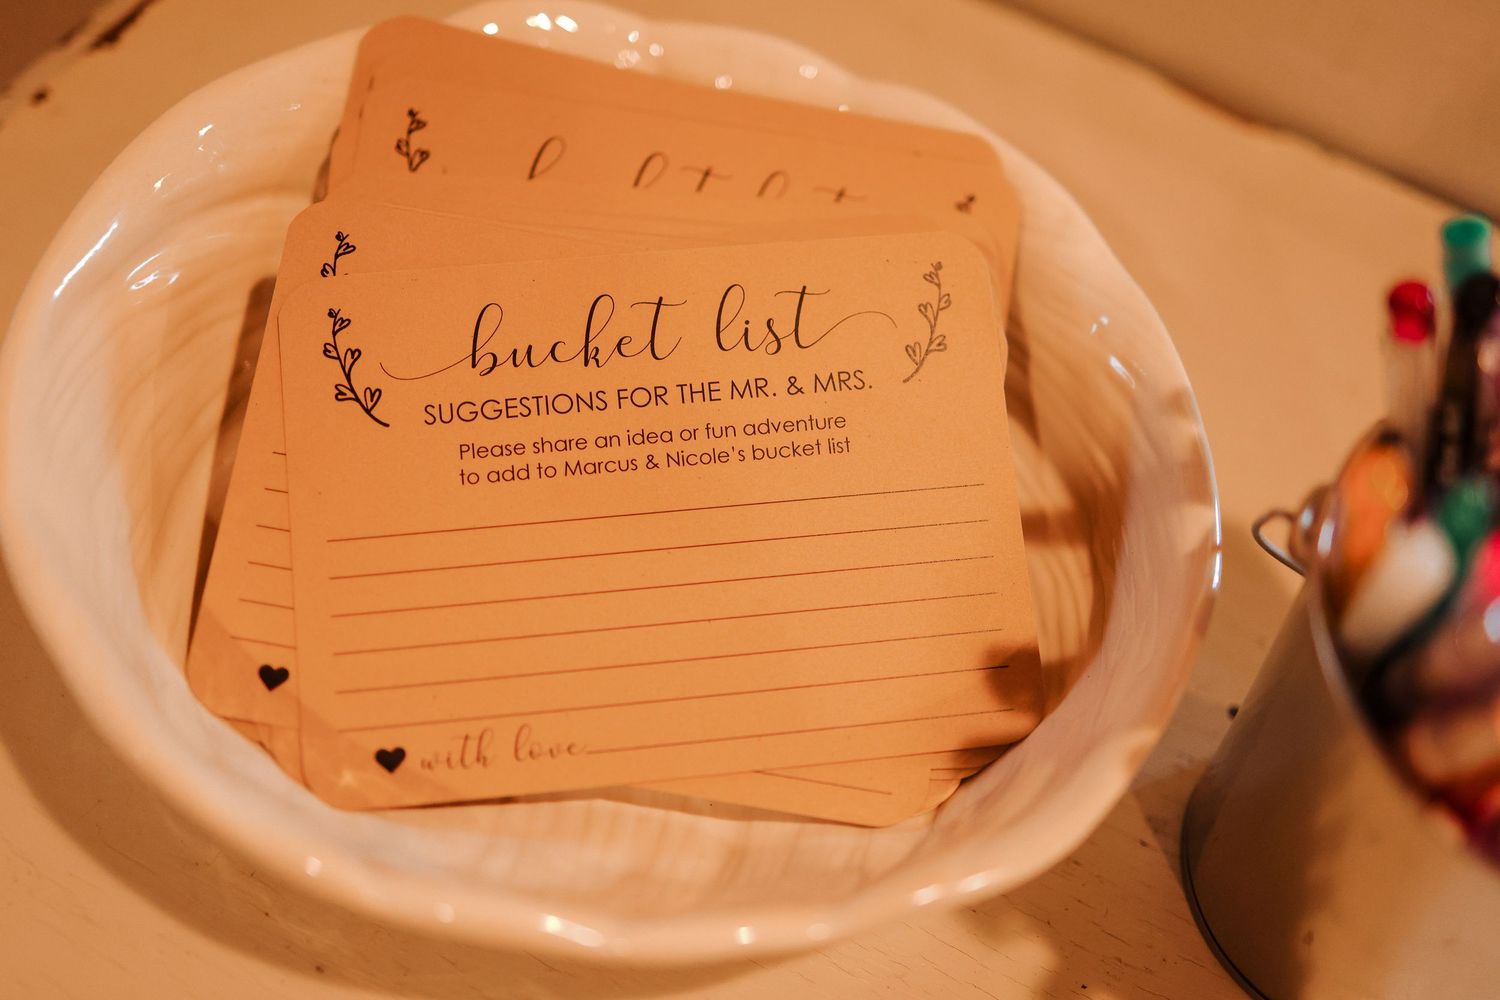 bucket list
SUGGESTIONS FOR THE MR. & MRS.
Please share an idea or fun adventure
to add to Marcus & Nicole's bucket list
with love